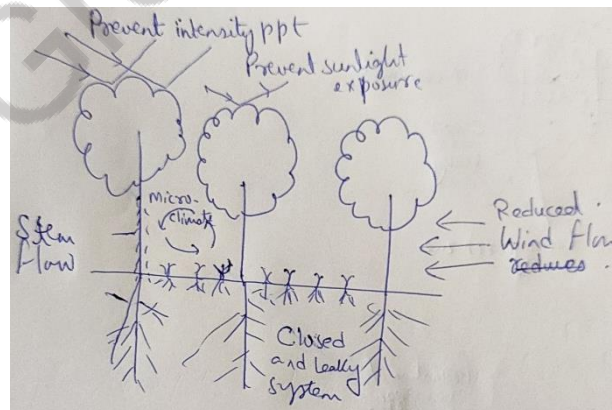 Prevent intensity ppt
Prevent sunlight
exposure
Micro-
climate
Stem
flow
Reduced
Wind flow
reduces
Closed
and leaky
system